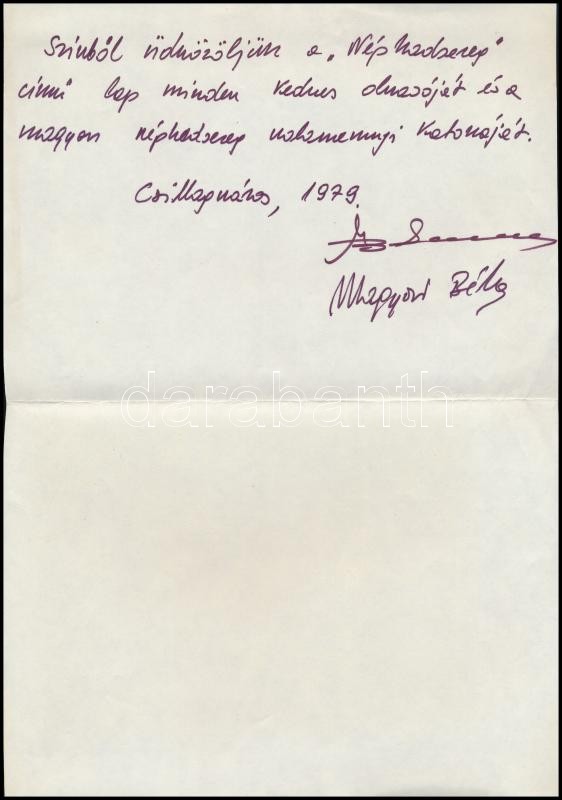 Szívből üdvözöljük a „Néphadsereg"
című lap minden kedves olvasóját és a
magyar néphadsereg valamennyi katonáját.
Csillagváros, 1979.
Magyari Béla
darabanth